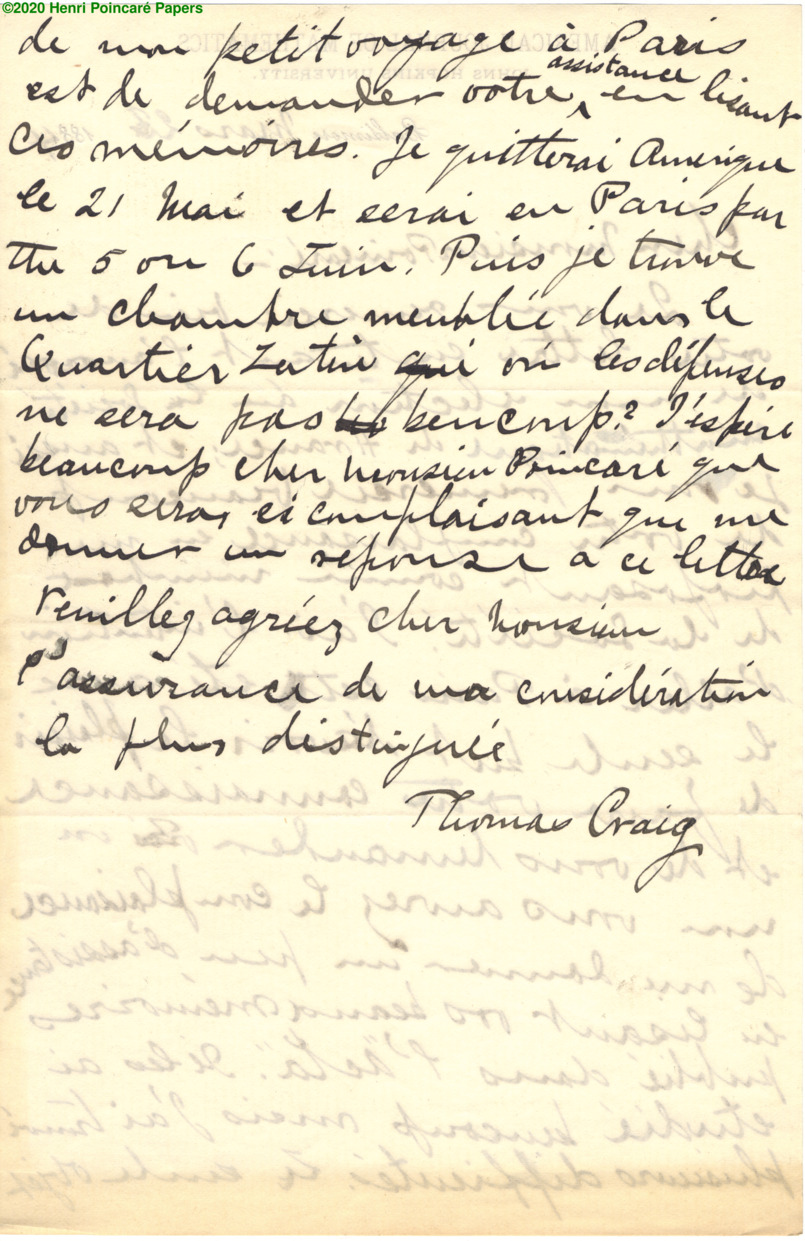 ©2020 Henri Poincaré Papers
de mon petit voyage à Paris
est de demander votre assistance en lisant
ces mémoires. Je quitterai Amerique
le 21 Mai et serai en Paris par
the 5 ou 6 Juin. Puis je trouve
un chambre meublée dans le
Quartier Latin qui où les défenses
ne sera pas beucoup? J'espère
beaucoup cher Monsieur Poincaré que
vous seray si complaisant que me
donner un réponse a ce lettre
Veuillez agréez cher Monsieur
l'assurance de ma considération
la plus distinguée
Thomas Craig